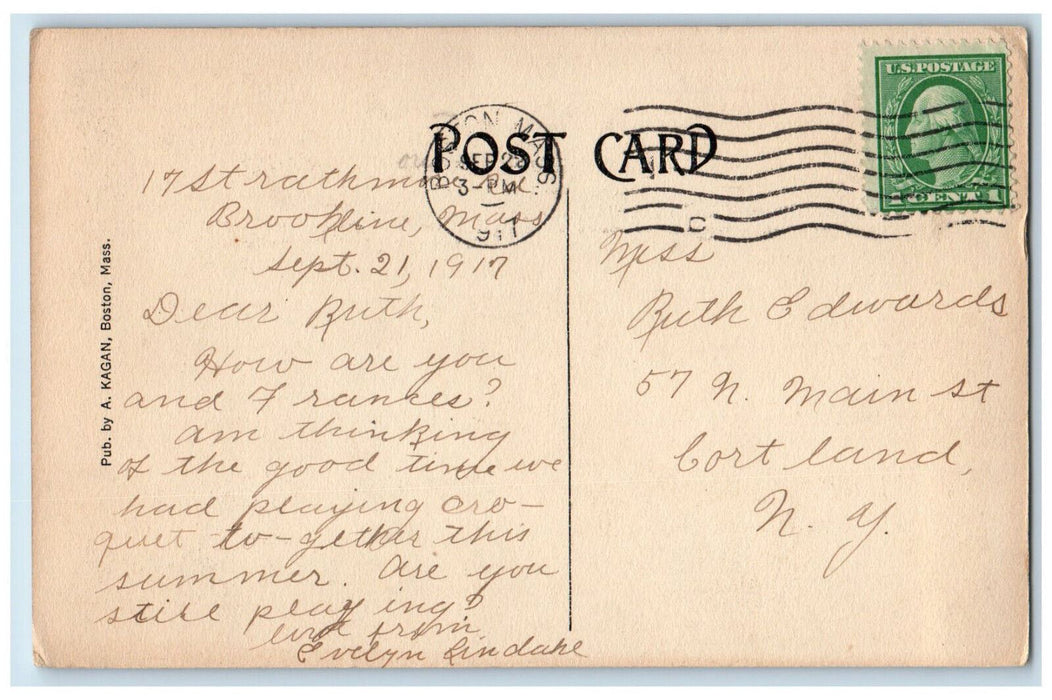 POST CARD
U.S. POSTAGE
1 CENT 1
BOSTON MASS
SEP 22
3-PM
1917
17 Strathmore Rd.
Brookline, Mass
Sept. 21, 1917
Dear Ruth,
How are you
and Frances?
am thinking
of the good time we
had playing cro-
quet to-gether this
summer. Are you
still playing?
love from
Evelyn Lindahl
Pub. by A. KAGAN, Boston, Mass.
Miss
Ruth Edwards
57 N. Main st
Cortland,
N. Y.